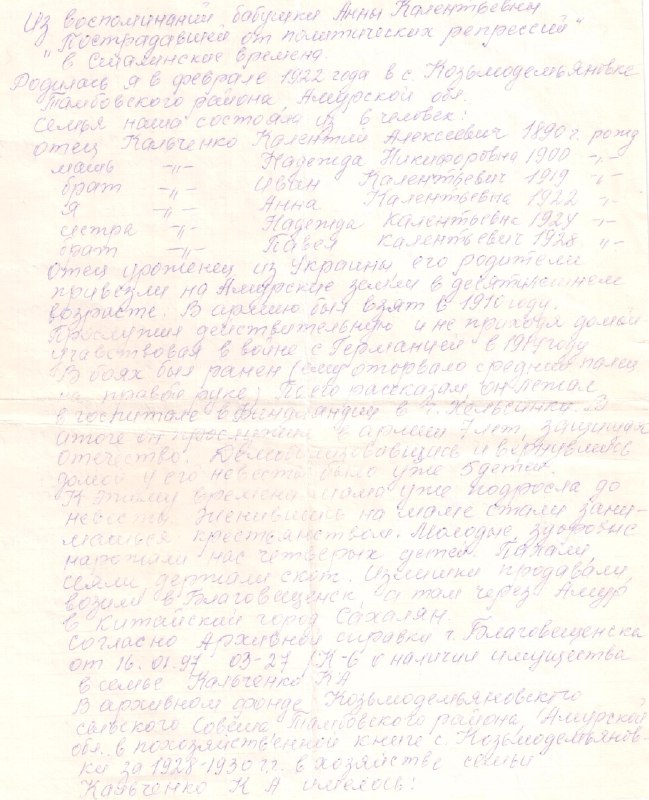 Из воспоминаний бабушки Анны Калентьевны
"Пострадавшей от политических репрессий"
в Сталинские времена
Родилась я в феврале 1922 года в с. Козьмодемьяновке
Тамбовского района, Амурской обл.
Семья наша состояла из 6 человек:
отец Кальченко Калентий Алексеевич 1890 г. рожд
мать -"- Надежда Никифоровна 1900 -"-
брат -"- Иван Калентьевич 1919 -"-
я -"- Анна Калентьевна 1922 -"-
сестра -"- Надежда Калентьевна 1924 -"-
брат -"- Павел Калентьевич 1928 -"-
Отец уроженец из Украины, его родители
привезли на Амурские земли в десятилетнем
возрасте. В армию был взят в 1910 году.
Прослужил действительную и не приходя домой
участвовал в войне с Германцей в 1914 году
В боях был ранен (ему оторвало средний палец
на правой руке) По его рассказам, он лежал
в госпитале в Финляндии в г. Хельсинки. В
итоге он прослужил в армии 7 лет, защищая
отечество. Демобилизовавшись и вернувшись
домой у его невесты было уже 5 детей.
К этому времени мама уже подросла до
невесты. Женившись на маме стали зани-
маться крестьянством. Молодые, здоровые
нарожали нас четверых детей. Пахали,
сеяли держали скот. Излишки продавали,
возили в Благовещенск, а там через Амур,
в Китайский город Сахалян.
Согласно Архивной справки г. Благовещенска
от 16.01.97 03-27 /К-6 о наличии имущества
в семье Кальченко КА
В архивном фонде Козьмодемьяновского
сельского Совета Тамбовского района, Амурской
обл. в похозяйственной книге с. Козьмодемьянов-
ки за 1928-1930 гг. в хозяйстве семьи
Кальченко К А имелось: